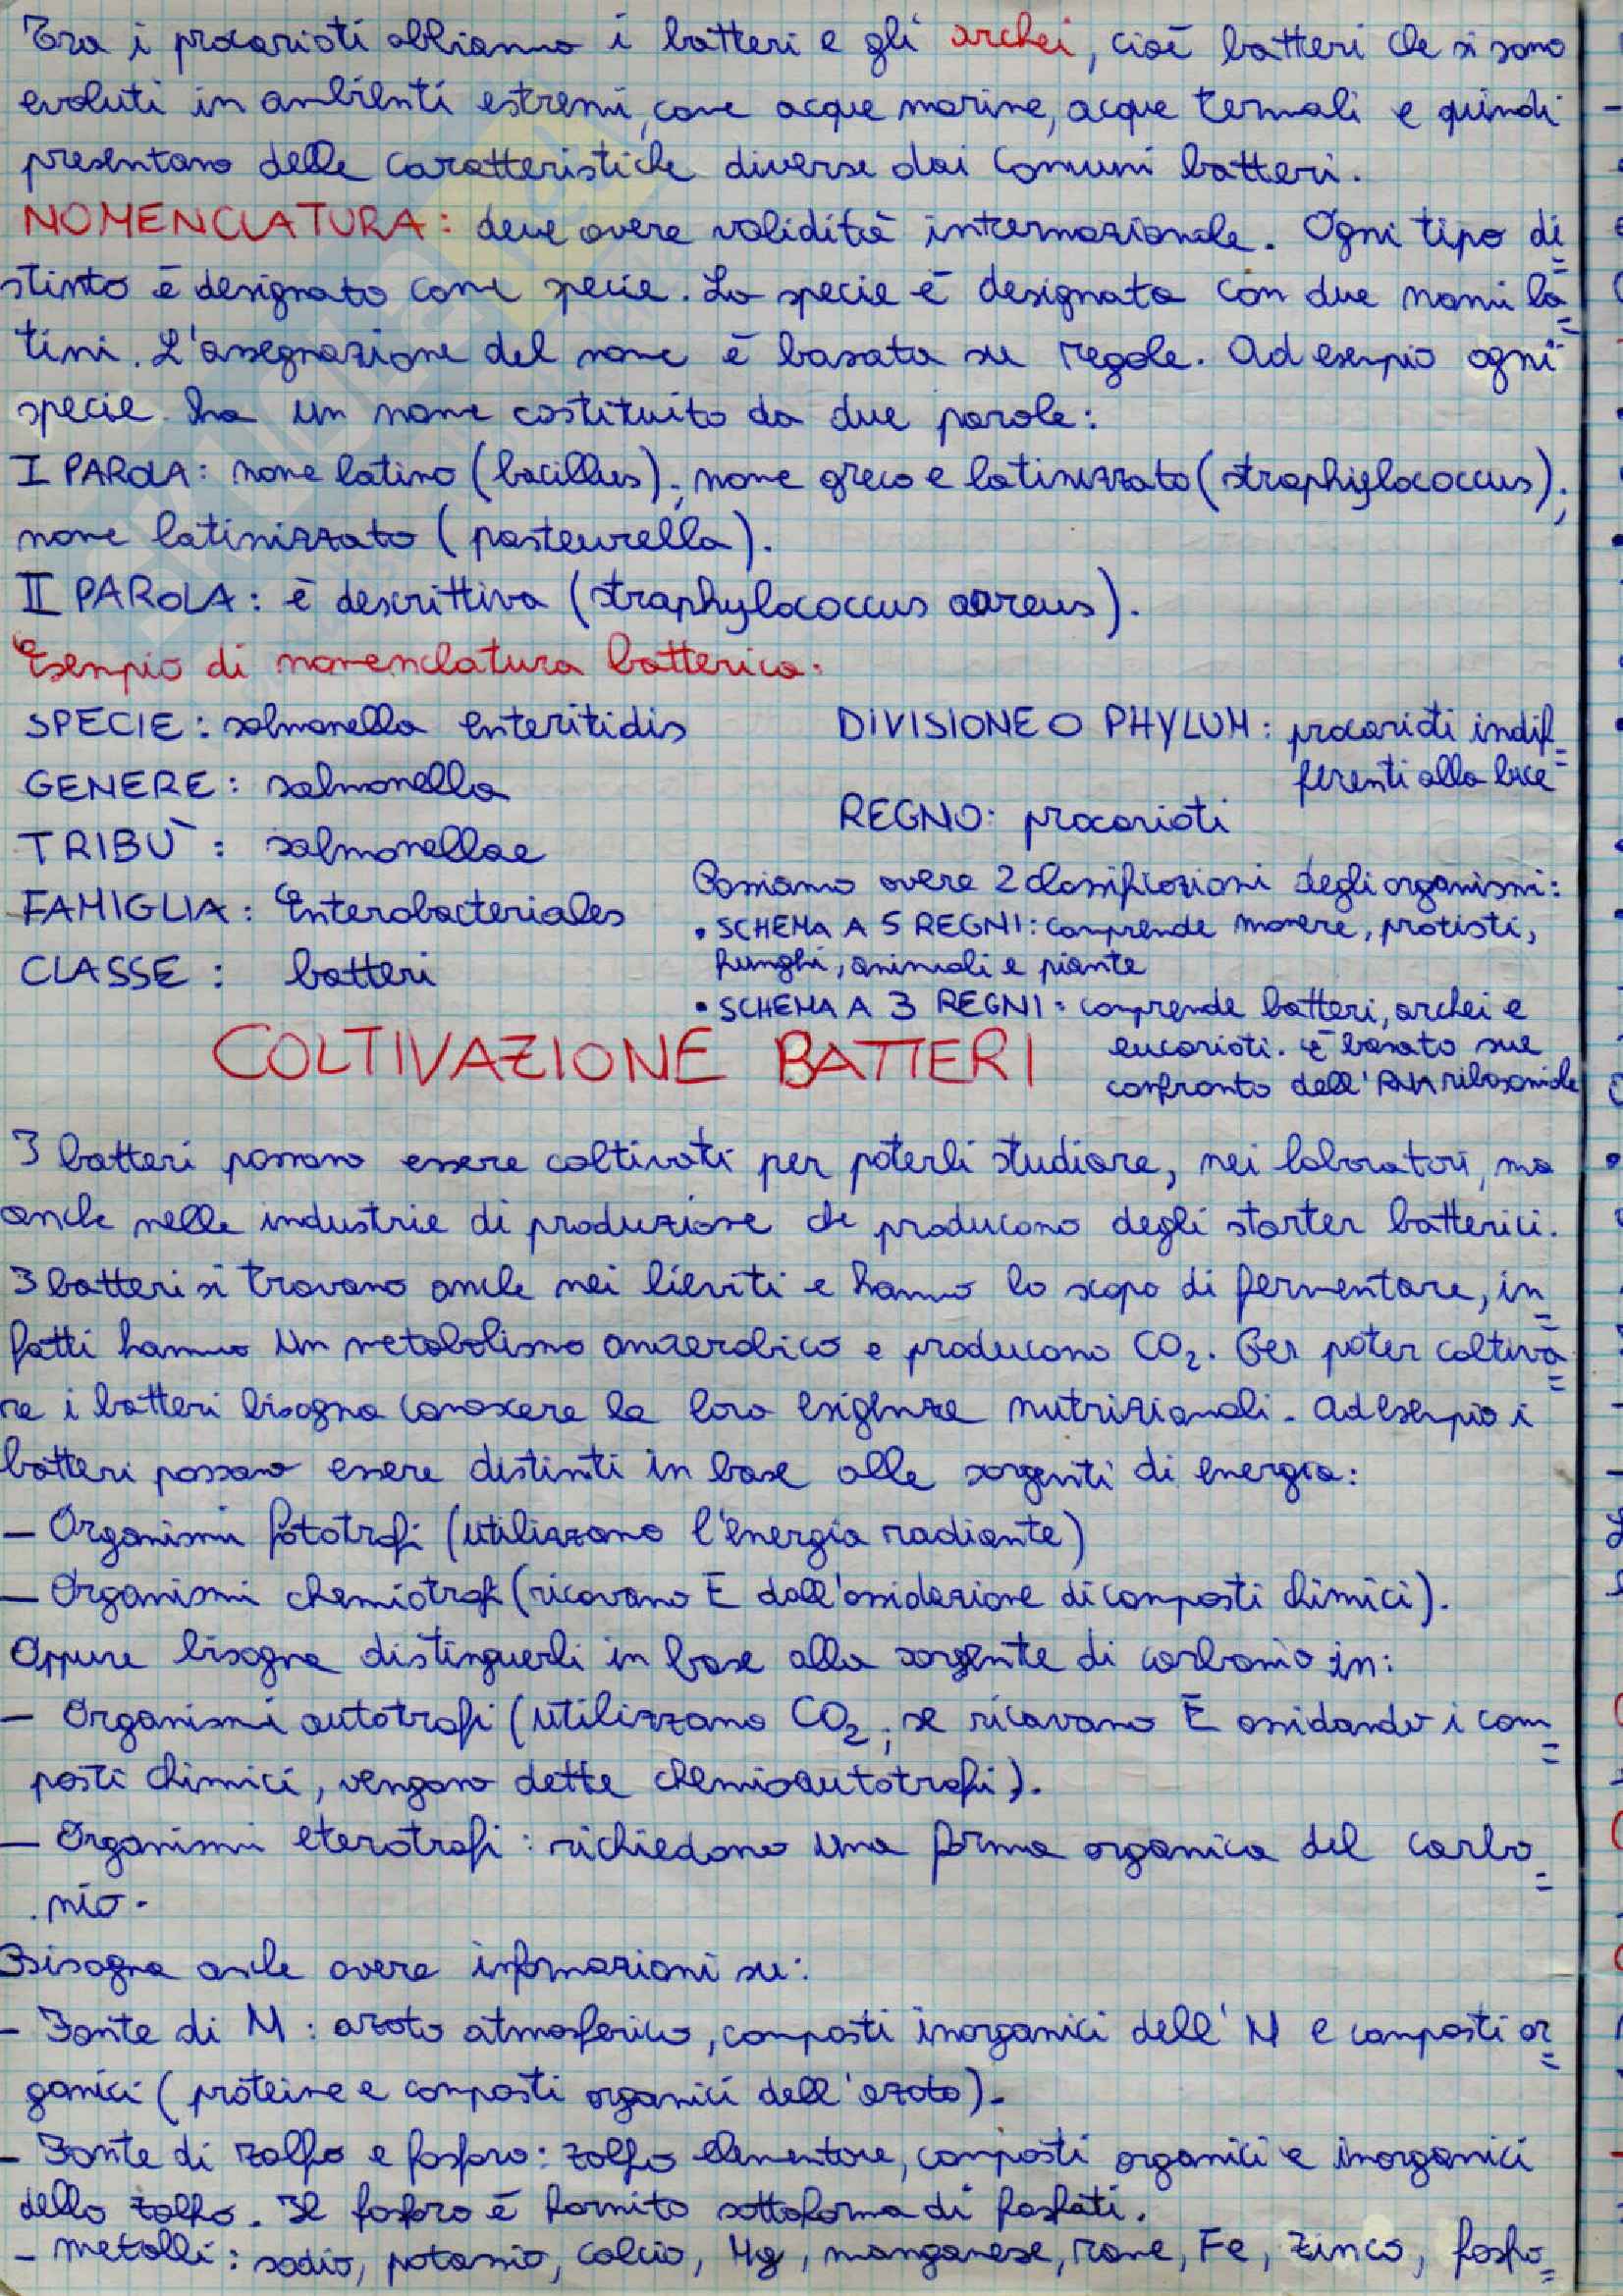 Tra i procarioti abbiamo i batteri e gli archei, cioè batteri che si sono
evoluti in ambienti estremi, come acque marine, acque termali e quindi
presentano delle caratteristiche diverse dai comuni batteri.
NOMENCLATURA: deve avere validità internazionale. Ogni tipo di=
stinto è designato come specie. La specie è designata con due nomi la=
tini. L'assegnazione del nome è basata su regole. Ad esempio ogni
specie ha un nome costituito da due parole:
I PAROLA: nome latino (bacillus); nome greco e latinizzato (straphylococcus);
nome latinizzato (pasteurella).
II PAROLA: è descrittiva (straphylococcus aureus).
Esempio di nomenclatura batterica:
SPECIE: salmonella enteritidis
GENERE: salmonella
TRIBÙ: salmonellae
FAMIGLIA: Enterobacteriales
CLASSE: batteri
DIVISIONE O PHYLUM: procarioti indif=
ferenti alla luce
REGNO: procarioti
Possiamo avere 2 classificazioni degli organismi:
• SCHEMA A 5 REGNI: comprende monere, protisti,
funghi, animali e piante
• SCHEMA A 3 REGNI: comprende batteri, archei e
eucarioti. È basato sul
confronto dell'RNA ribosomiale
COLTIVAZIONE BATTERI
I batteri possono essere coltivati per poterli studiare, nei laboratori, ma
anche nelle industrie di produzione che producono degli starter batterici.
I batteri si trovano anche nei lieviti e hanno lo scopo di fermentare, in=
fatti hanno un metabolismo anaerobico e producono CO2. Per poter coltiva=
re i batteri bisogna conoscere le loro esigenze nutrizionali. Ad esempio i
batteri possono essere distinti in base alle sorgenti di energia:
– Organismi fototrofi (utilizzano l'energia radiante)
– Organismi chemiotrofi (ricavano E dall'ossidazione di composti chimici).
Oppure bisogna distinguerli in base alla sorgente di carbonio in:
– Organismi autotrofi (utilizzano CO2; se ricavano E ossidando i com=
posti chimici, vengono dette chemioautotrofi).
– Organismi eterotrofi: richiedono una forma organica del carbo=
nio.
Bisogna anche avere informazioni su:
– Fonte di N: azoto atmosferico, composti inorganici dell'N e composti or=
ganici (proteine e composti organici dell'azoto).
– Fonte di zolfo e fosforo: zolfo elementare, composti organici e inorganici
dello zolfo. Il fosforo è fornito sottoforma di fosfati.
– metalli: sodio, potassio, calcio, Mg, manganese, rame, Fe, zinco, fosfo=